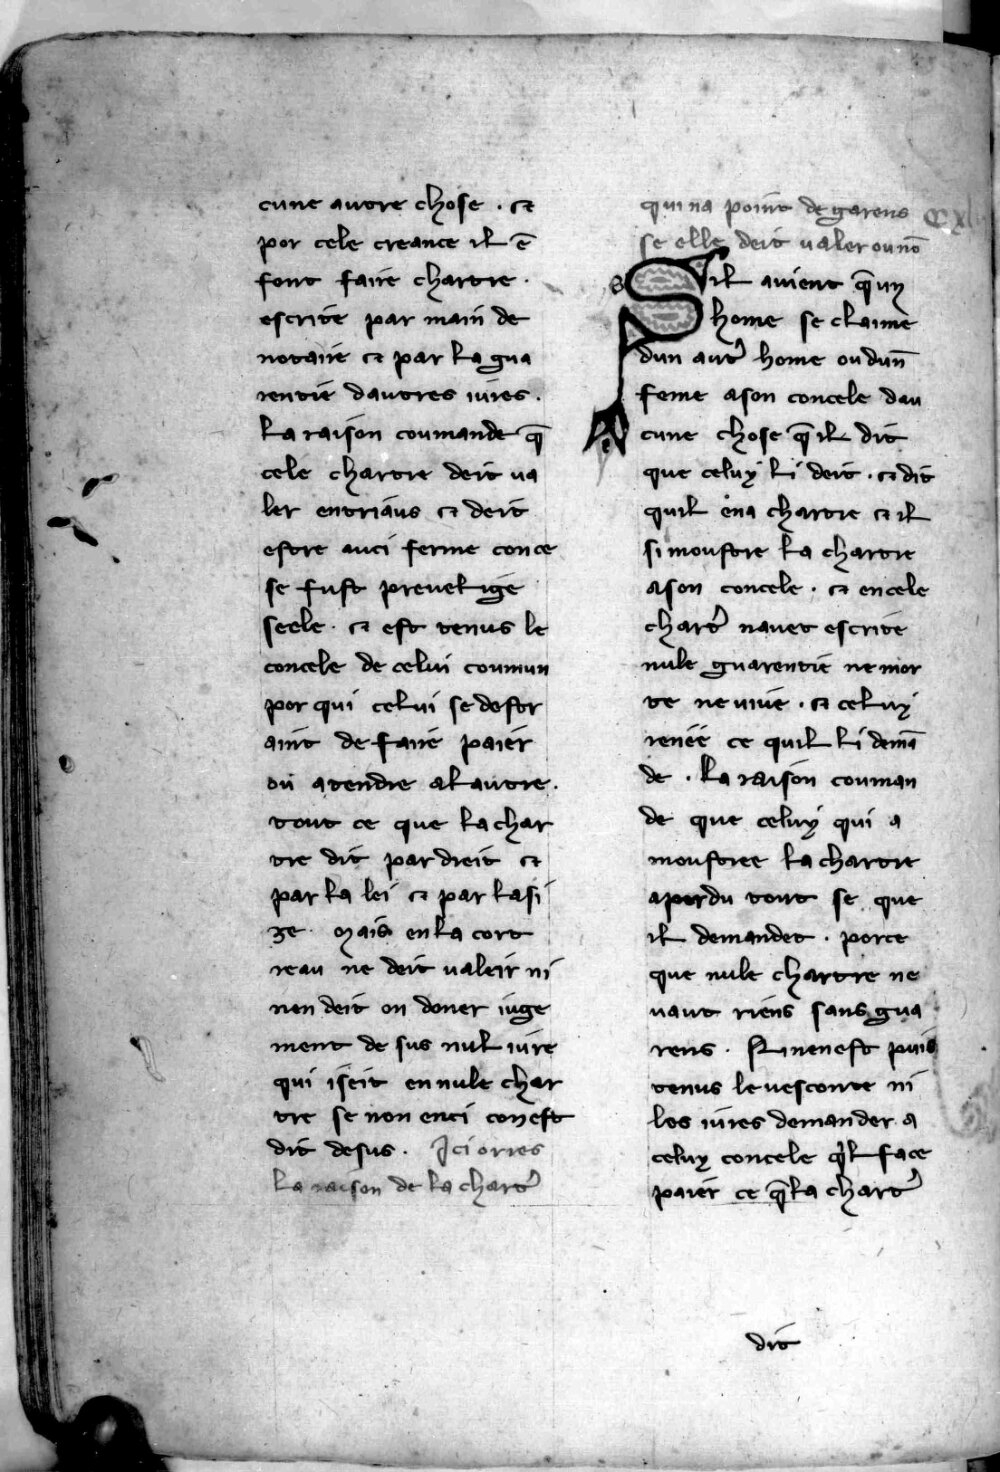 cune autre chose . ⁊
por cele creance il ē
font faire chartre .
escrite par main de
notaire ⁊ par la gua
rentie dautres iures .
La raison coumande q̄
cele chartre deit ua
ler entriaus ⁊ deit
estre auci ferme conce
se fust preuelige
seele . ⁊ est tenus le
concele de celui coumun
por qui celui se destr
aint de faire paier
ou atendre al autre .
tout ce que la char
tre dit par dreit ⁊
par la lei ⁊ par lasi
ze . Mais en la cort
reau ne deit ualeir ni
nen deit on doner iuge
ment de sus nul iure
qui iseit en nule char
tre se non enci con est
dit desus . Ici orres
la raison de la chartʾ
qui na point de garens
se elle deit ualer ou nō
Sil auient q̄ un
home se claime
dun autʾ home ou dunē
feme a son concele dau
cune chose q̄ il dit
que celuy li deit . ⁊ dit
quil ena chartre ⁊ il
si moustre la chartre
a son concele . ⁊ en cele
chartʾ nauet escrite
nule guarentie ne mor
te ne uiue . ⁊ celuy
renee ce quil li demā
de . La raison couman
de que celuy qui a
moustree la chartre
a perdu tout se que
il demandet . por ce
que nule chartre ne
uaut riens sans gua
rens . Ni nen est puis
tenus le uesconte ni
les iures demander a
celuy concele q̓l face
paier ce q̄ la chartʾ
dit